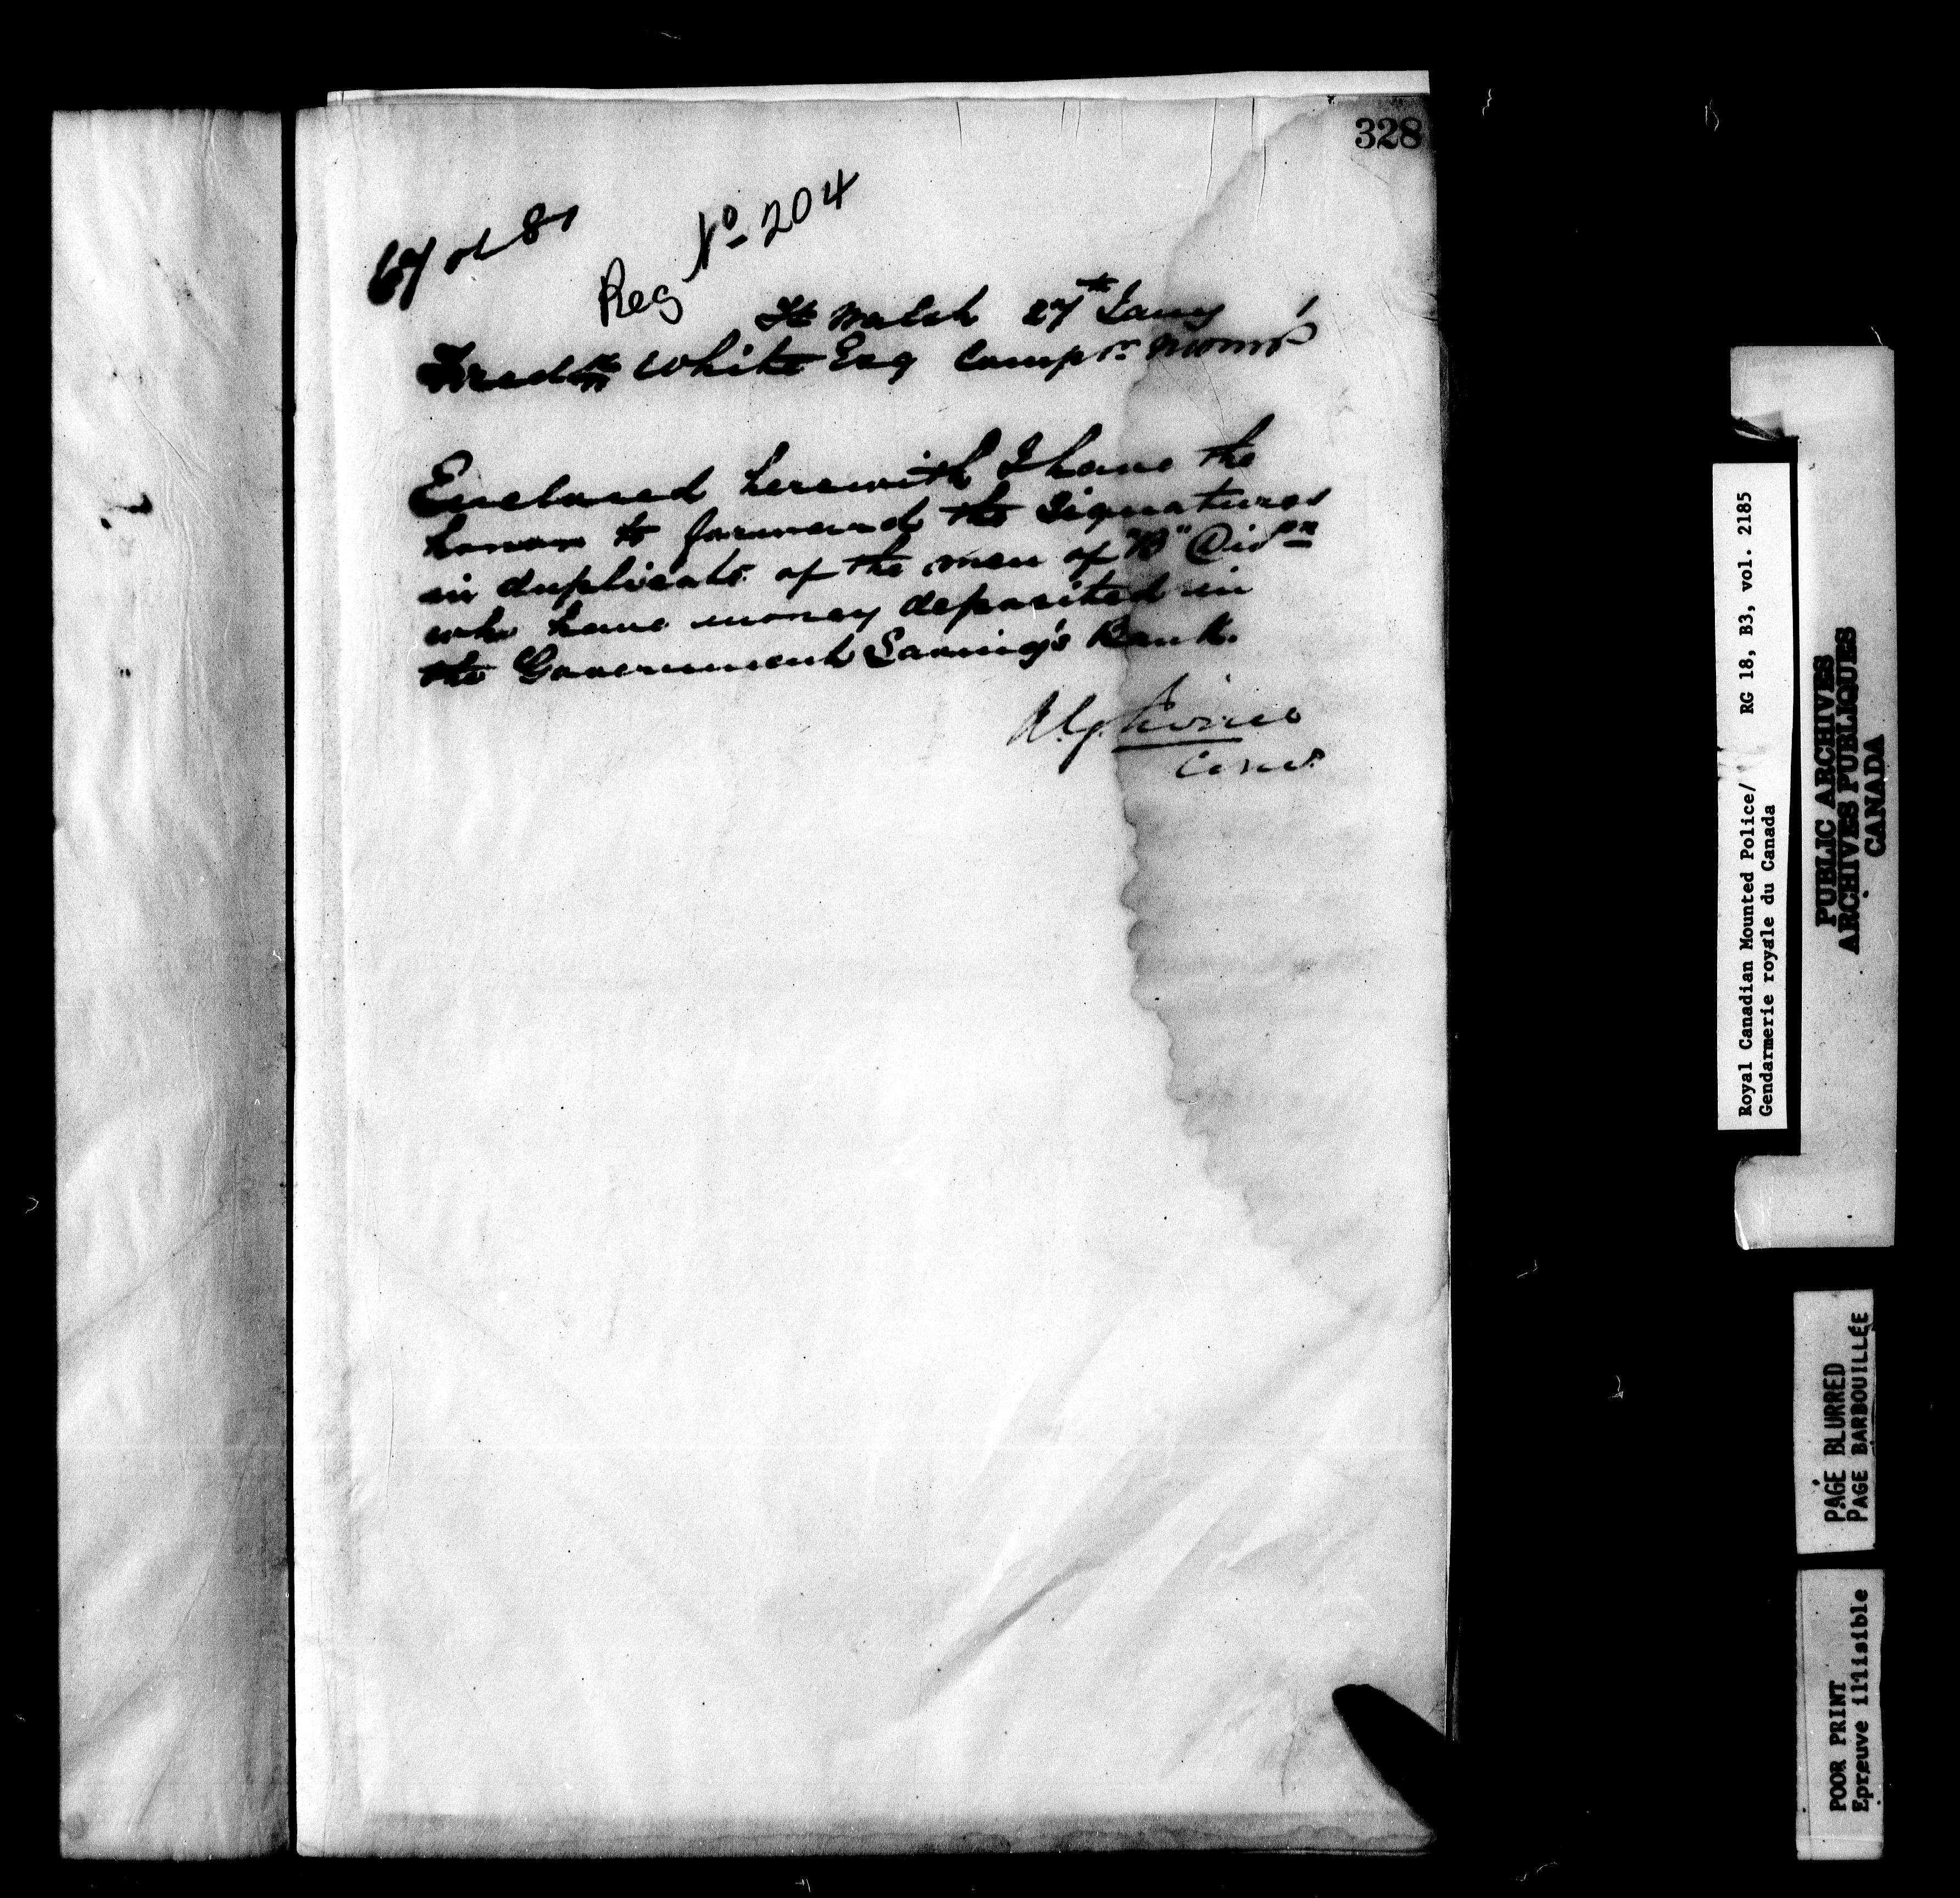 328
67 of 81
Reg No 204
Ft Walsh 27th Jany
Fredk White Esq Compr N.W.M.P
Enclosed herewith I have the
honor to forward the Signatures
in duplicate of the men of "B" Divn
who have money deposited in
the Government Saving's Bank.
A.G. Irvine
Comr.
Royal Canadian Mounted Police/ RG 18, B3, vol. 2185
Gendarmerie royale du Canada
PUBLIC ARCHIVES
ARCHIVES PUBLIQUES
CANADA
PAGE BLURRED
PAGE BARBOUILLÉE
POOR PRINT
Epreuve illisible